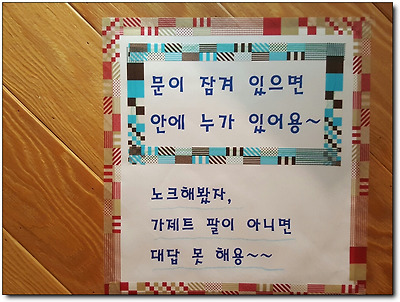 문이 잠겨 있으면
안에 누가 있어용~
노크해봤자,
가제트 팔이 아니면
대답 못 해용~~